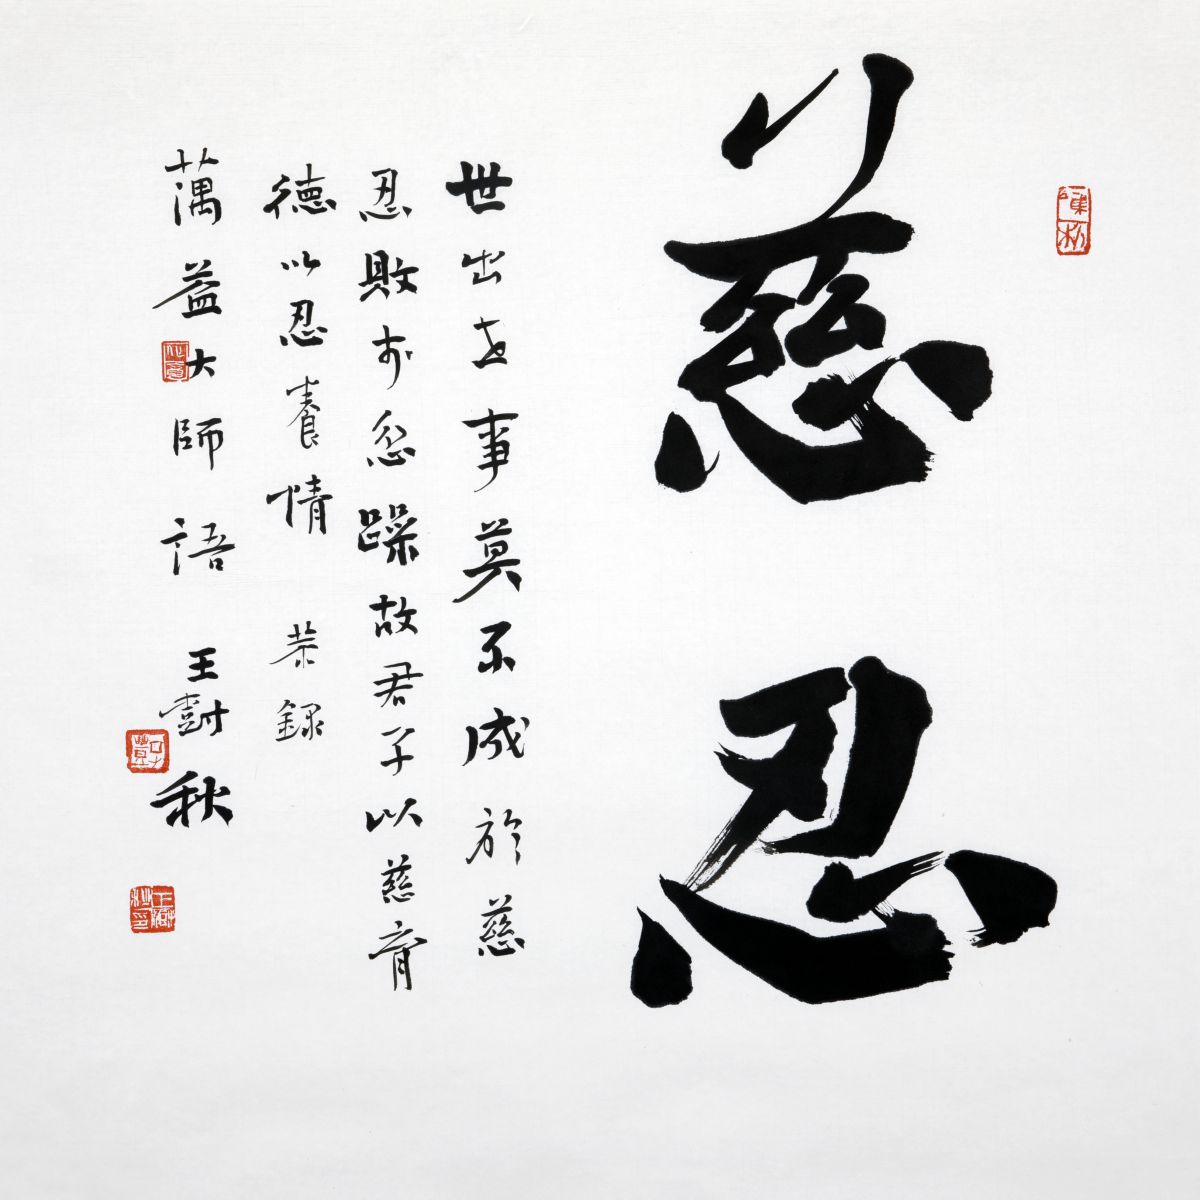 慈忍
世出世事莫不成於慈
忍敗於忿躁故君子以慈育
德以忍養情 恭錄
蕅益大師語 王樹秋